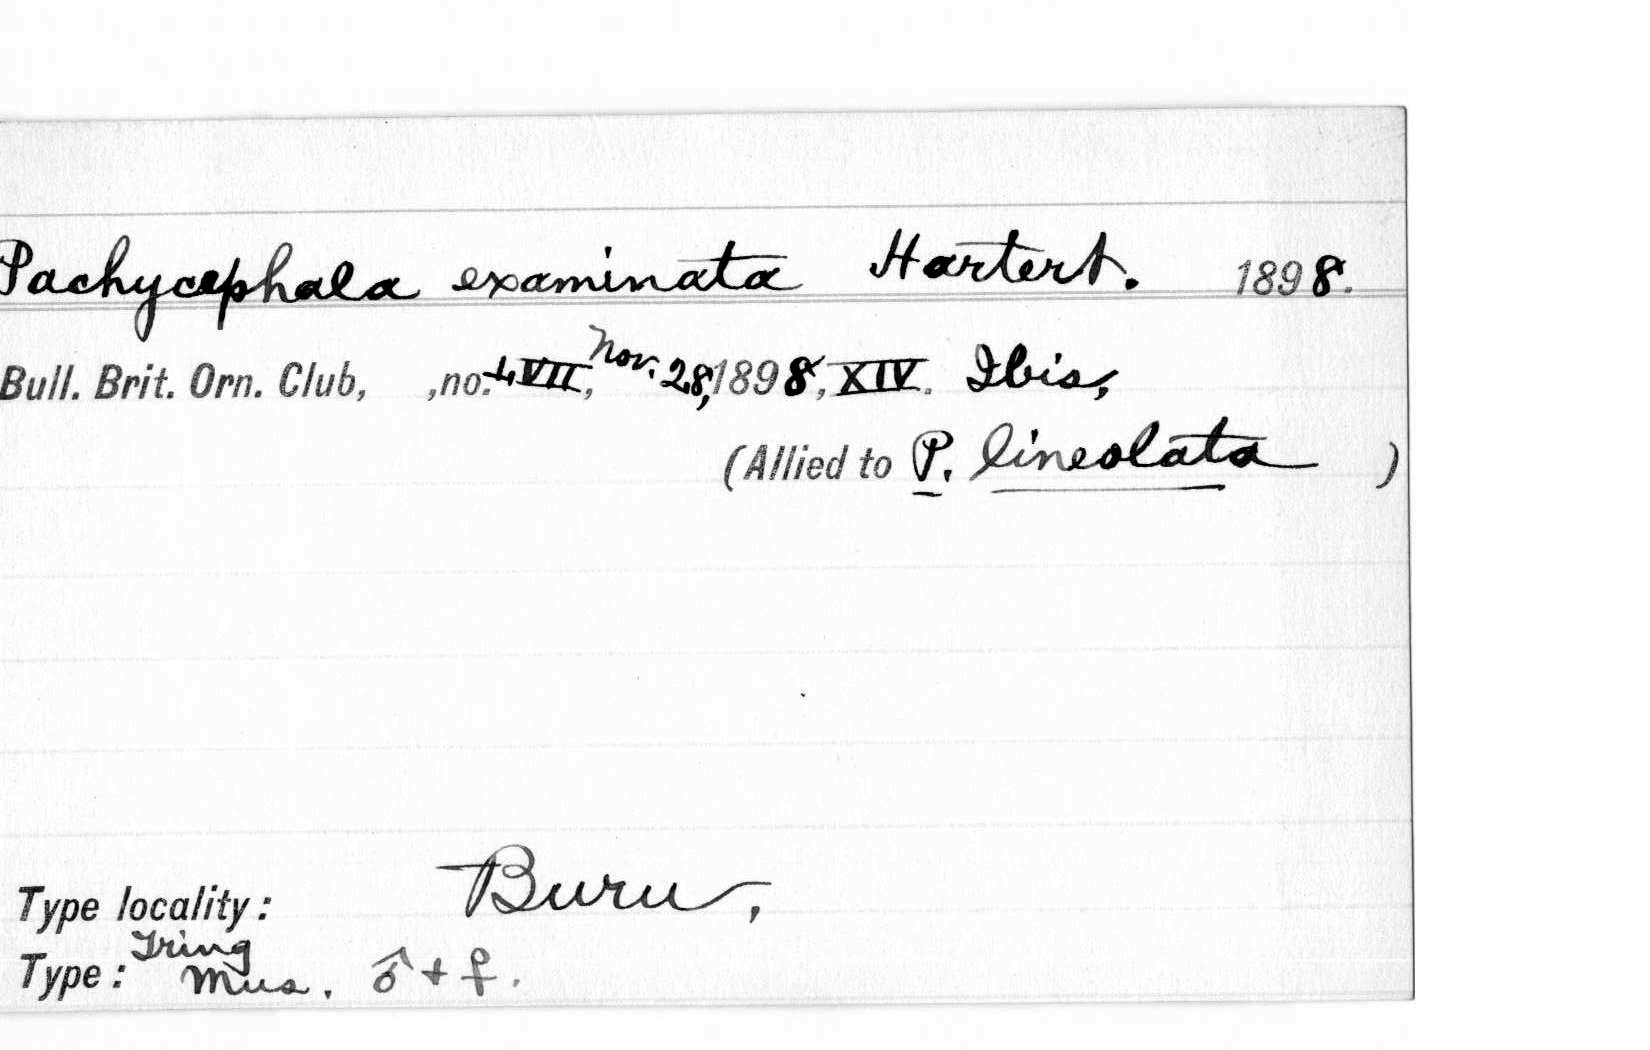 Pachycephala examinata Hartert. 1898.
Bull. Brit. Orn. Club, ,no. LVII, Nov. 28, 1898, XIV. Ibis,
(Allied to P. lineolata )
Type locality: Buru,
Type: Tring Mus. ♂ + ♀.